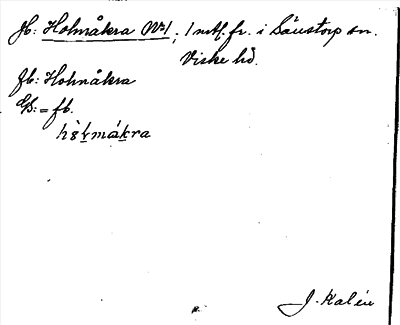 fb: Holmåkra No 1, 1 mtl. fr. i Säustorp sn.
Viske hd.
fb: Holmåkra
Us: = fb.
J. Kalén